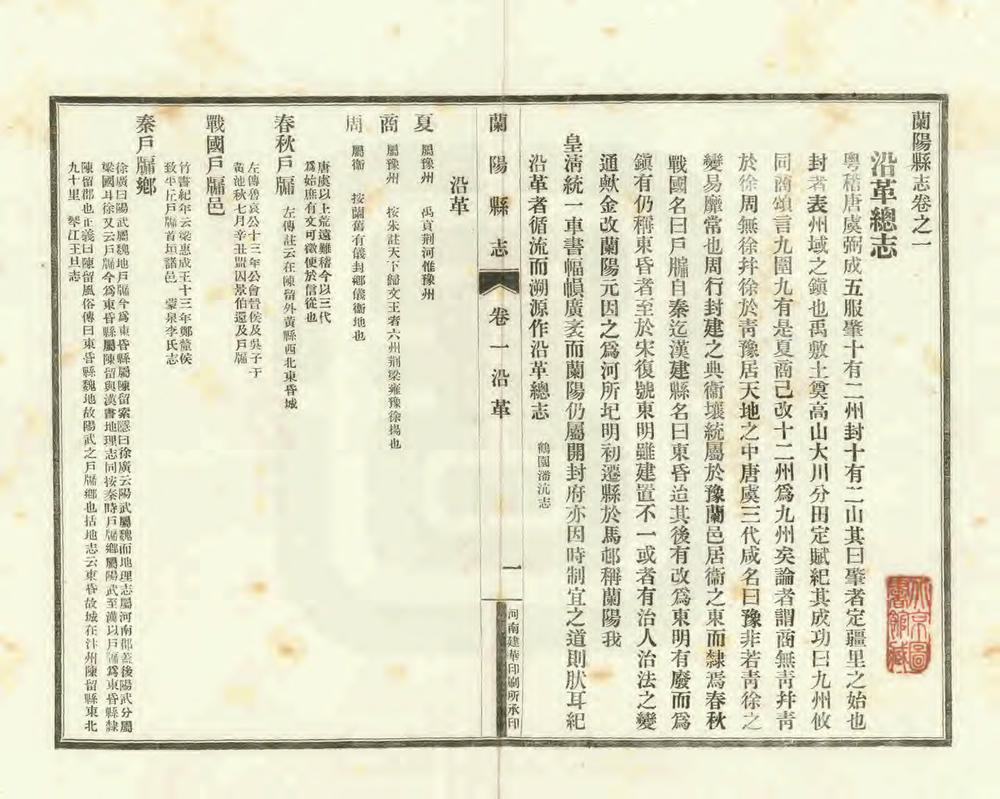 蘭陽縣志卷之一
沿革總志
粵稽唐虞弼成五服肇十有二州封十有二山其曰肇者定疆里之始也
封者表州域之鎮也禹敷土奠高山大川分田定賦紀其成功曰九州攸
同商頌言九圍九有是夏商已改十二州為九州矣論者謂商無靑幷靑
於徐周無徐幷徐於靑豫居天地之中唐虞三代咸名曰豫非若靑徐之
變易靡常也周行封建之典衞壤統屬於豫蘭邑居衞之東而隸焉春秋
戰國名曰戶牖自秦迄漢建縣名曰東昏迨其後有改為東明有廢而為
鎮有仍稱東昏者至於宋復號東明雖建置不一或者有治人治法之變
通歟金改蘭陽元因之為河所圮明初遷縣於馬邨稱蘭陽我
皇淸統一車書幅幀廣袤而蘭陽仍屬開封府亦因時制宜之道則肰耳紀
沿革者循流而溯源作沿革總志 鶴園潘沆志
蘭陽縣志 卷一 沿革 一 河南建華印刷所承印
沿革
夏 屬豫州 禹貢荆河惟豫州
商 屬豫州 按朱註天下歸文王者六州荆梁雍豫徐揚也
周 屬衞 按蘭舊有儀封鄉儀衞地也
唐虞以上荒遠難稽今以三代
為始庶有文可徵便於信從也
春秋戶牖 左傳註云在陳留外黃縣西北東昏城
左傳魯哀公十三年公會晉侯及吳子于
黃池秋七月辛丑盟囚景伯還及戶牖
戰國戶牖邑
竹書紀年云梁惠成王十三年鄭釐侯
致平丘戶牖首垣諸邑 蒙泉李氏志
秦戶牖鄉
徐廣曰陽武屬魏地戶牖今為東昏縣屬陳留索隱曰徐廣云陽武屬魏而地理志屬河南郡蓋後陽武分屬
梁國耳徐又云戶牖今為東昏縣屬陳留與漢書地理志同按秦時戶牖鄉屬陽武至漢以戶牖為東昏縣隸
陳留郡也正義曰陳留風俗傳曰東昏縣魏地故陽武之戶牖鄉也括地志云東昏故城在汴州陳留縣東北
九十里 琴江王旦志